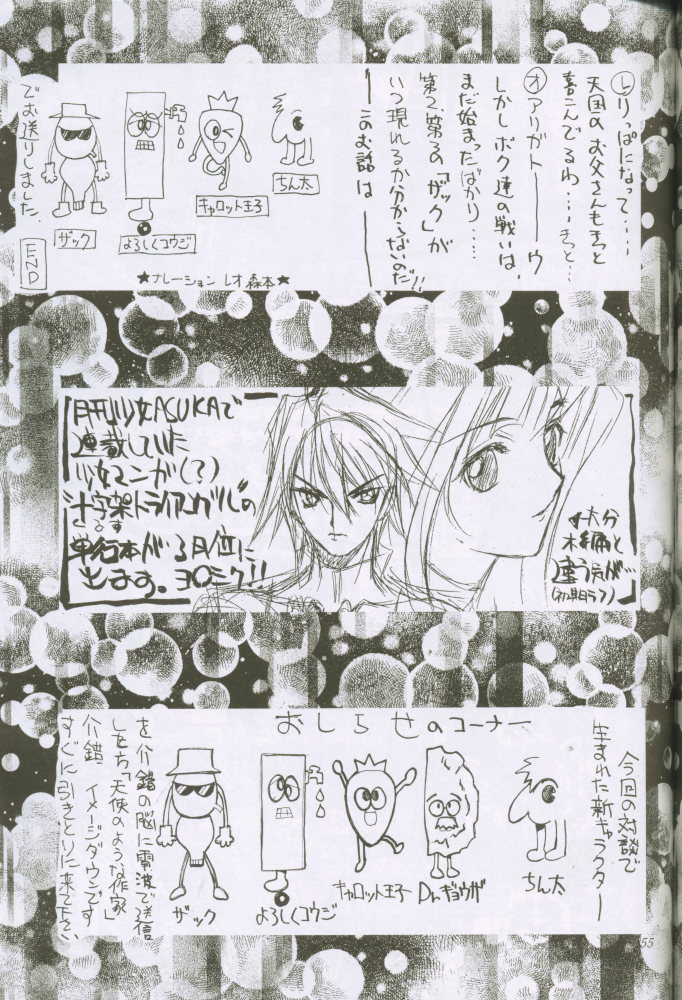 レ りっぱになって‥‥
天国の、お父さんもきっと
喜こんでるわ‥‥きっと‥
オ アリガトーーウ
しかしボク達の戦いは、
まだ始まったばかり‥‥
第2、第3の「ザック」が
いつ現れるか分からないのだ!!
──このお話は──
ちん太
キャロット王子
よろしくコウジ
ザック
でお送りしました。
END
★ナレーション レオ森本★
月刊少女ASUKAで
連載していた
少女マンガ(?)
十字架トライアングルの
単行本が3月位に
出ます。ヨロシク!!
大分
本編と
違う気が…
(初期ラフ)
おしらせのコーナー
今回の対談で
生まれた新キャラクター
ちん太
Dr.ギョウザ
キャロット王子
よろしくコウジ
ザック
を介錯の脳に電波で送信
した方「天使のような作家
介錯」イメージダウンです
すぐに引きとりに来て下さい
55